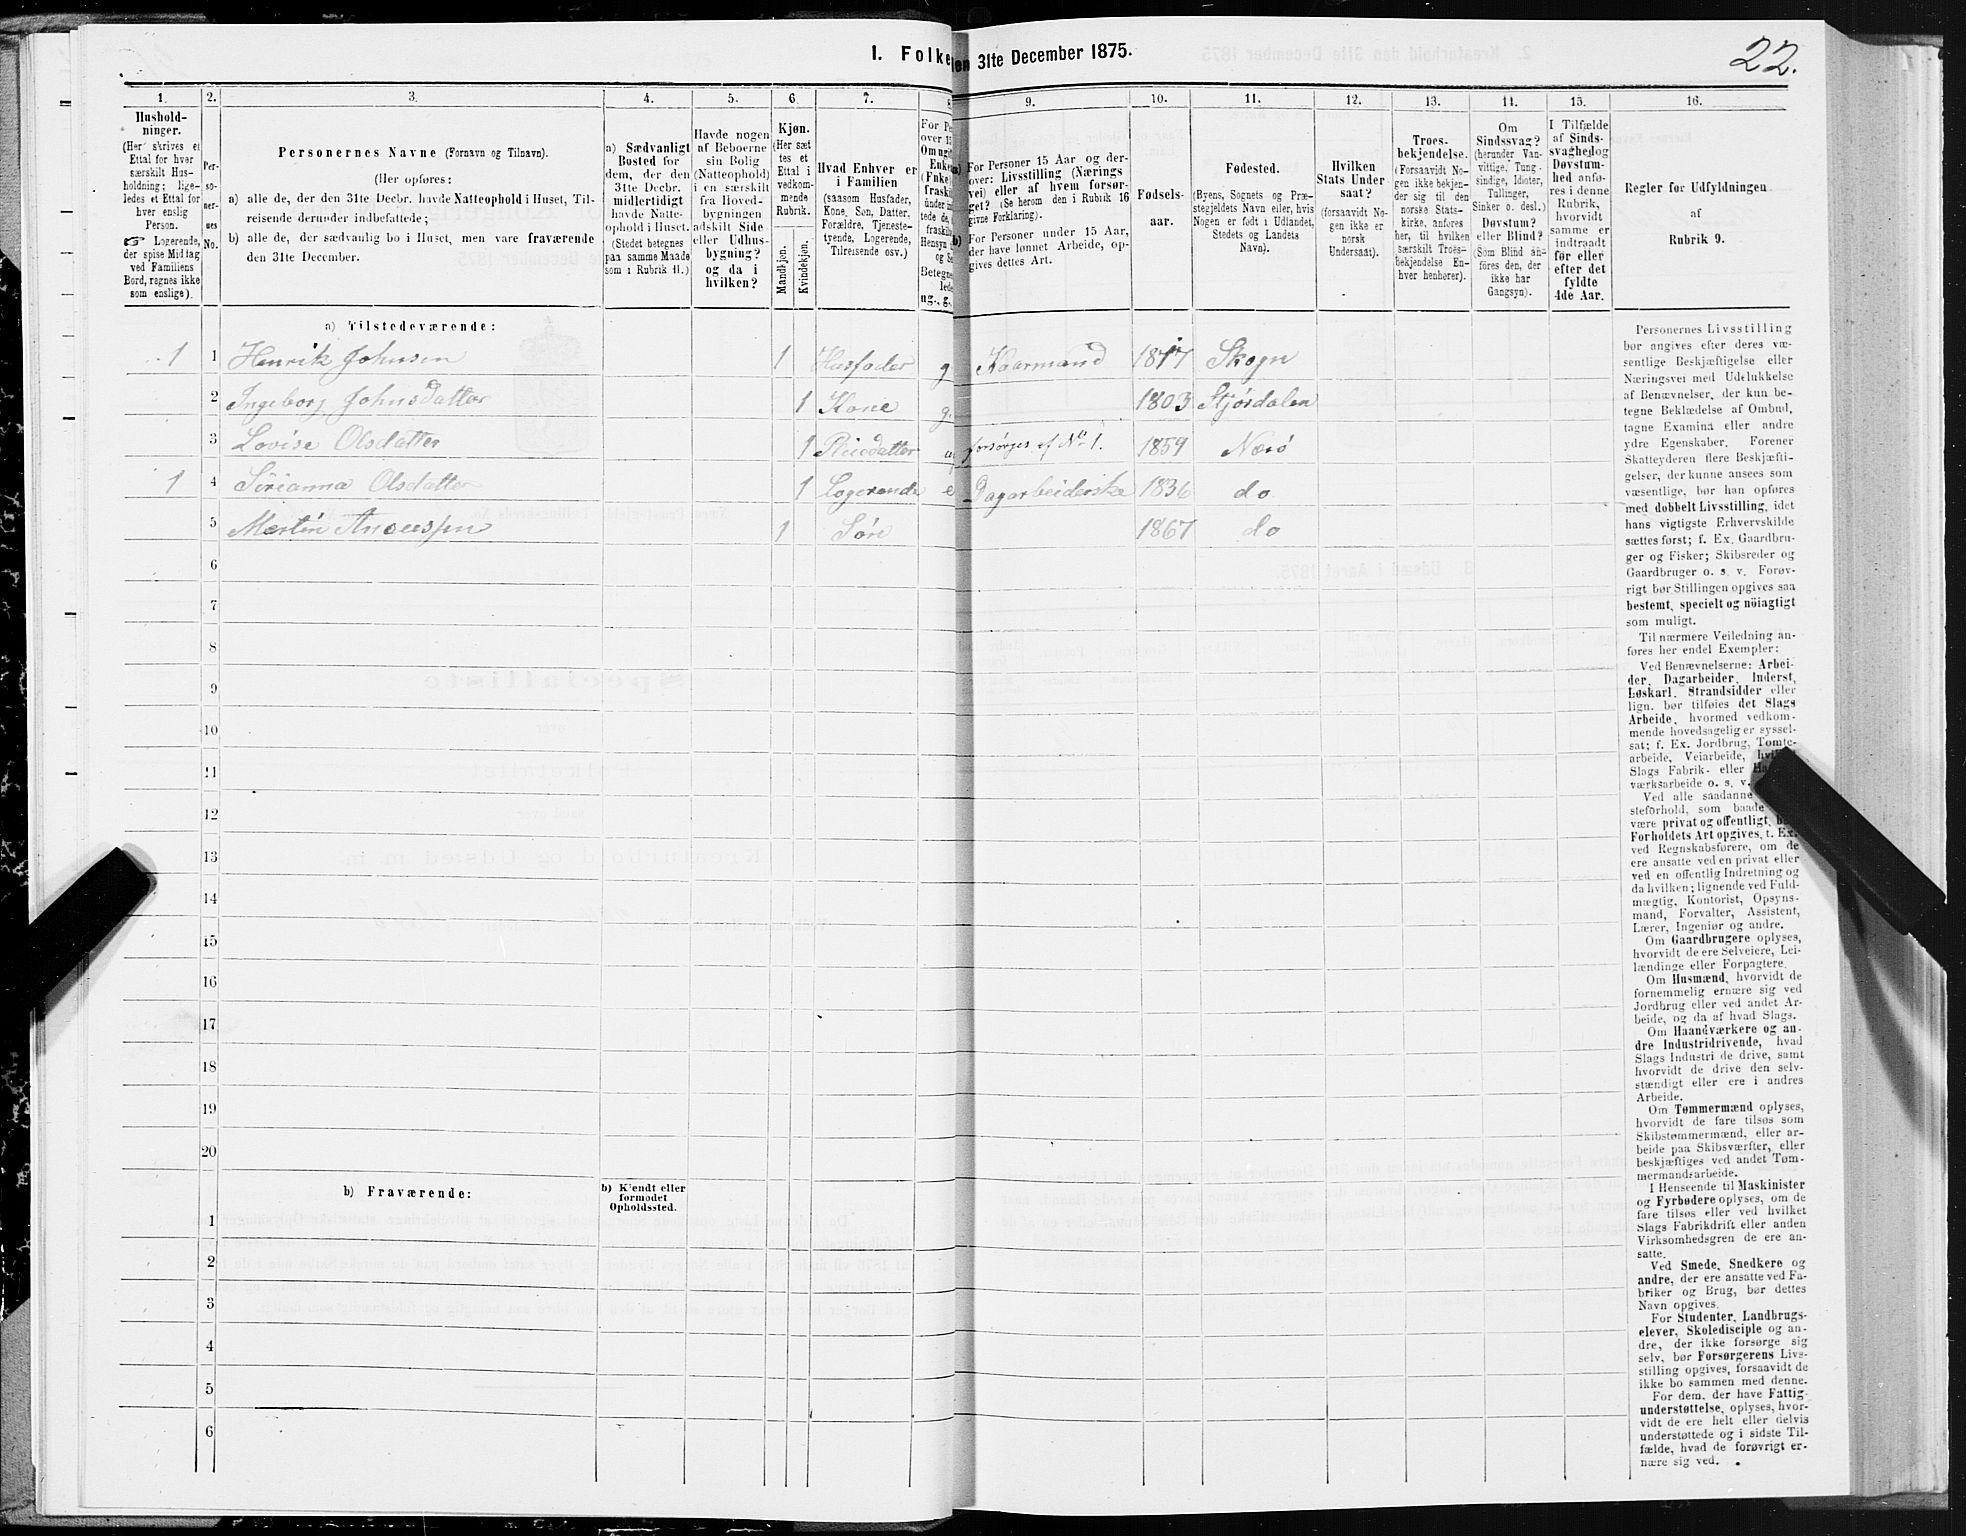 I. Folke
en 31te December 1875.
22.
1.
2.
3.
4.
5.
6.
7.
8
9.
10.
11.
12.
13.
14.
15.
16.
Hushold-
ninger.
(Her skrives et
Ettal for hver
særskilt Hus-
holdning; lige-
ledes et Ettal for
hver enslig
Person.
☞ Logerende,
der spise Middag
ved Familiens
Bord, regnes ikke
som enslige).
Per-
so-
ner-
nes
No.
Personernes Navne (Fornavn og Tilnavn).
(Her opføres:
a) alle de, der den 31te Decbr. havde Natteophold i Huset, Til-
reisende derunder indbefattede;
b) alle de, der sædvanlig bo i Huset, men vare fraværende
den 31te December.
a) Sædvanligt
Bosted for
dem, der den
31te Decbr.
midlertidigt
havde Natte-
ophold i Huset.
(Stedet betegnes
paa samme Maade
som i Rubrik 11.)
Havde nogen
af Beboerne
sin Bolig
(Natteophold)
i en særskilt
fra Hoved-
bygningen
adskilt Side-
eller Udhus-
bygning?
og da i
hvilken?
Kjøn.
(Her sæt-
tes et
Ettal i
vedkom-
mende
Rubrik.
Mandkjøn.
Kvindekjøn.
Hvad Enhver er
i Familien
(saasom Husfader,
Kone, Søn, Datter,
Forældre, Tjeneste-
tyende, Logerende,
Tilreisende osv.)
For Pe
over 15
Om ugift
Enke
(Enke
fraskil
under in
tede de,
fraskil
Hensyn
og Se
Betegne
lede
ug., g.,
a) For Personer 15 Aar og der-
over: Livsstilling (Nærings-
vei) eller af hvem forsør-
get? (Se herom den i Rubrik 16
givne Forklaring).
b) For Personer under 15 Aar,
der have lønnet Arbeide, op-
gives dettes Art.
Fødsels-
aar.
Fødested.
(Byens, Sognets og Præ-
stegjeldets Navn eller, hvis
Nogen er født i Udlandet,
Stedets og Landets
Navn).
Hvilken
Stats Under-
saat?
(forsaavidt No-
gen ikke er
norsk
Undersaat).
Troes-
bekjendelse.
(Forsaavidt No-
gen ikke bekjen-
der sig til den
norske Stats-
kirke, anføres
her, til hvilken
særskilt Troes-
bekjendelse En-
hver henhører).
Om
Sindssvag?
(herunder Van-
vittige, Tung-
sindige, Idioter,
Tullinger,
Sinker o. desl.)
Døvstum?
eller Blind?
(Som Blind an-
føres den, der
ikke har
Gangsyn).
I Tilfælde
af Sinds-
svaghed og
Døvstum-
hed anfø-
res i denne
Rubrik,
hvorvidt
samme er
indtraadt
før eller
efter det
fyldte
4de Aar.
Regler for Udfyldningen
af
Rubrik 9.
a) Tilstedeværende:
1 1 Henrik Johnsen 1 Husfader g Kaarmand 1817 Skogn
2 Ingeborg Johnsdatter 1 Kone g. 1803 Stjørdalen
3 Lovise Olsdatter 1 Pleiedatter u forsørges af No 1. 1859 Nærø
1 4 Sørianna Olsdatter 1 Logerende e Dagarbeiderske 1836 do
5 Martin Andersen 1 Søn 1867 do
6
7
8
9
10
11
12
13
14
15
16
17
18
19
20
b) Fraværende:
b) Kjendt eller
formodet
Opholdssted.
1
2
3
4
5
6
Personernes Livsstilling
bør angives efter deres væ-
sentlige Beskjæftigelse eller
Næringsvei med Udelukkelse
af Benævnelser, der kun be-
tegne Beklædelse af Ombud,
tagne Examina eller andre
ydre Egenskaber. Forener
Skatteyderen flere Beskjæfti-
gelser, der kunne ansees som
væsentlige, bør han opføres
med dobbelt Livsstilling, idet
hans vigtigste Erhvervskilde
sættes først; f. Ex. Gaardbru-
ger og Fisker; Skibsreder og
Gaardbruger o. s. v. Forøv-
rigt bør Stillingen opgives saa
bestemt, specielt og nöiagtigt
som muligt.
Til nærmere Veiledning an-
føres her endel Exempler:
Ved Benævnelserne: Arbei-
der, Dagarbeider, Inderst,
Løskarl, Strandsidder eller
lign. bør tilføies det Slags
Arbeide, hvormed vedkom-
mende hovedsagelig er syssel-
sat; f. Ex. Jordbrug, Tomte-
arbeide, Veiarbeide,
Slags Fabrik- eller
værksarbeide o. s. v.
Ved alle saadanne
steforhold, som baade
være privat og offentligt,
Forholdets Art opgives, t. Ex.
ved Regnskabsførere, om de
ere ansatte ved en privat eller
ved en offentlig Indretning og
da hvilken; lignende ved Fuld-
mægtig, Kontorist, Opsyns-
mand, Forvalter, Assistent,
Lærer, Ingeniør og andre.
Om Gaardbrugere oplyses,
hvorvidt de ere Selveiere, Lei-
lændinge eller Forpagtere.
Om Husmænd, hvorvidt de
fornemmelig ernære sig ved
Jordbrug eller ved andet Ar-
beide, og da af hvad Slags.
Om Haandværkere og an-
dre Industridrivende, hvad
Slags Industri de drive, samt
hvorvidt de drive den selv-
stændigt eller ere i andres
Arbeide.
Om Tømmermænd oplyses,
hvorvidt de fare tilsøs som
Skibstømmermænd, eller ar-
beide paa Skibsværfter, eller
beskjæftiges ved andet Tøm-
mermandsarbeide.
I Henseende til Maskinister
og Fyrbødere oplyses, om de
fare tilsøs eller ved hvilket
Slags Fabrikdrift eller anden
Virksomhedsgren de ere an-
satte.
Ved Smede, Snedkere og
andre, der ere ansatte ved Fa-
briker og Brug, bør dettes
Navn opgives.
For Studenter, Landbrugs-
elever, Skoledisciple og an-
dre, der ikke forsørge sig
selv, bør Forsørgerens Livs-
stilling opgives, forsaavidt de
ikke bo sammen med denne.
For dem, der have Fattig-
understøttelse, oplyses, hvor-
vidt de ere helt eller delvis
understøttede og i sidste Til-
fælde, hvad de forøvrigt er-
nære sig ved.